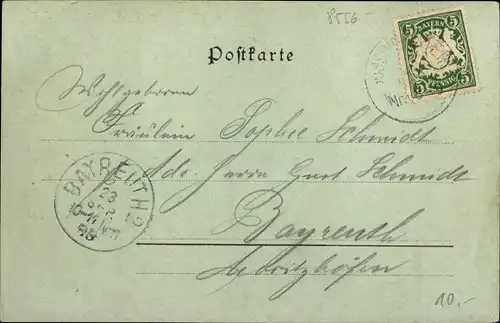 8556-
5 BAYERN 5
5 PFENNIG 5
Postkarte
Wohlgeboren
Fräulein Sophie Schmidt
Adr. Herrn Gust Schmidt
BAYREUTH 2
23
98
Bayreuth
10.-